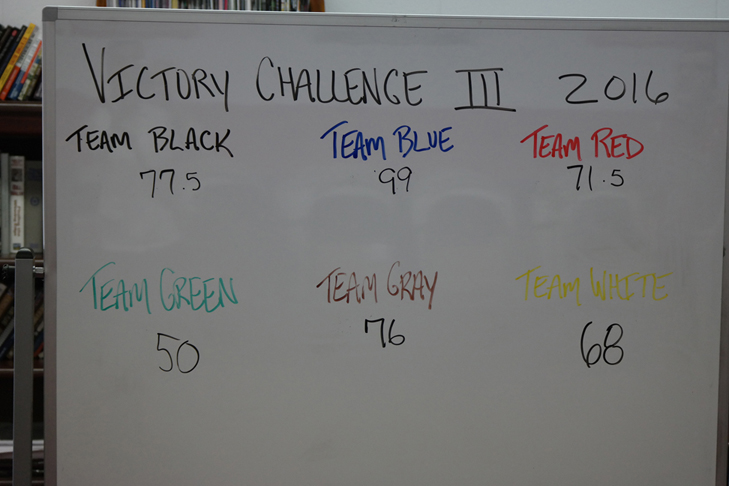 VICTORY CHALLENGE III 2016
TEAM BLACK TEAM BLUE TEAM RED
77.5 99 71.5
TEAM GREEN TEAM GRAY TEAM WHITE
50 76 68